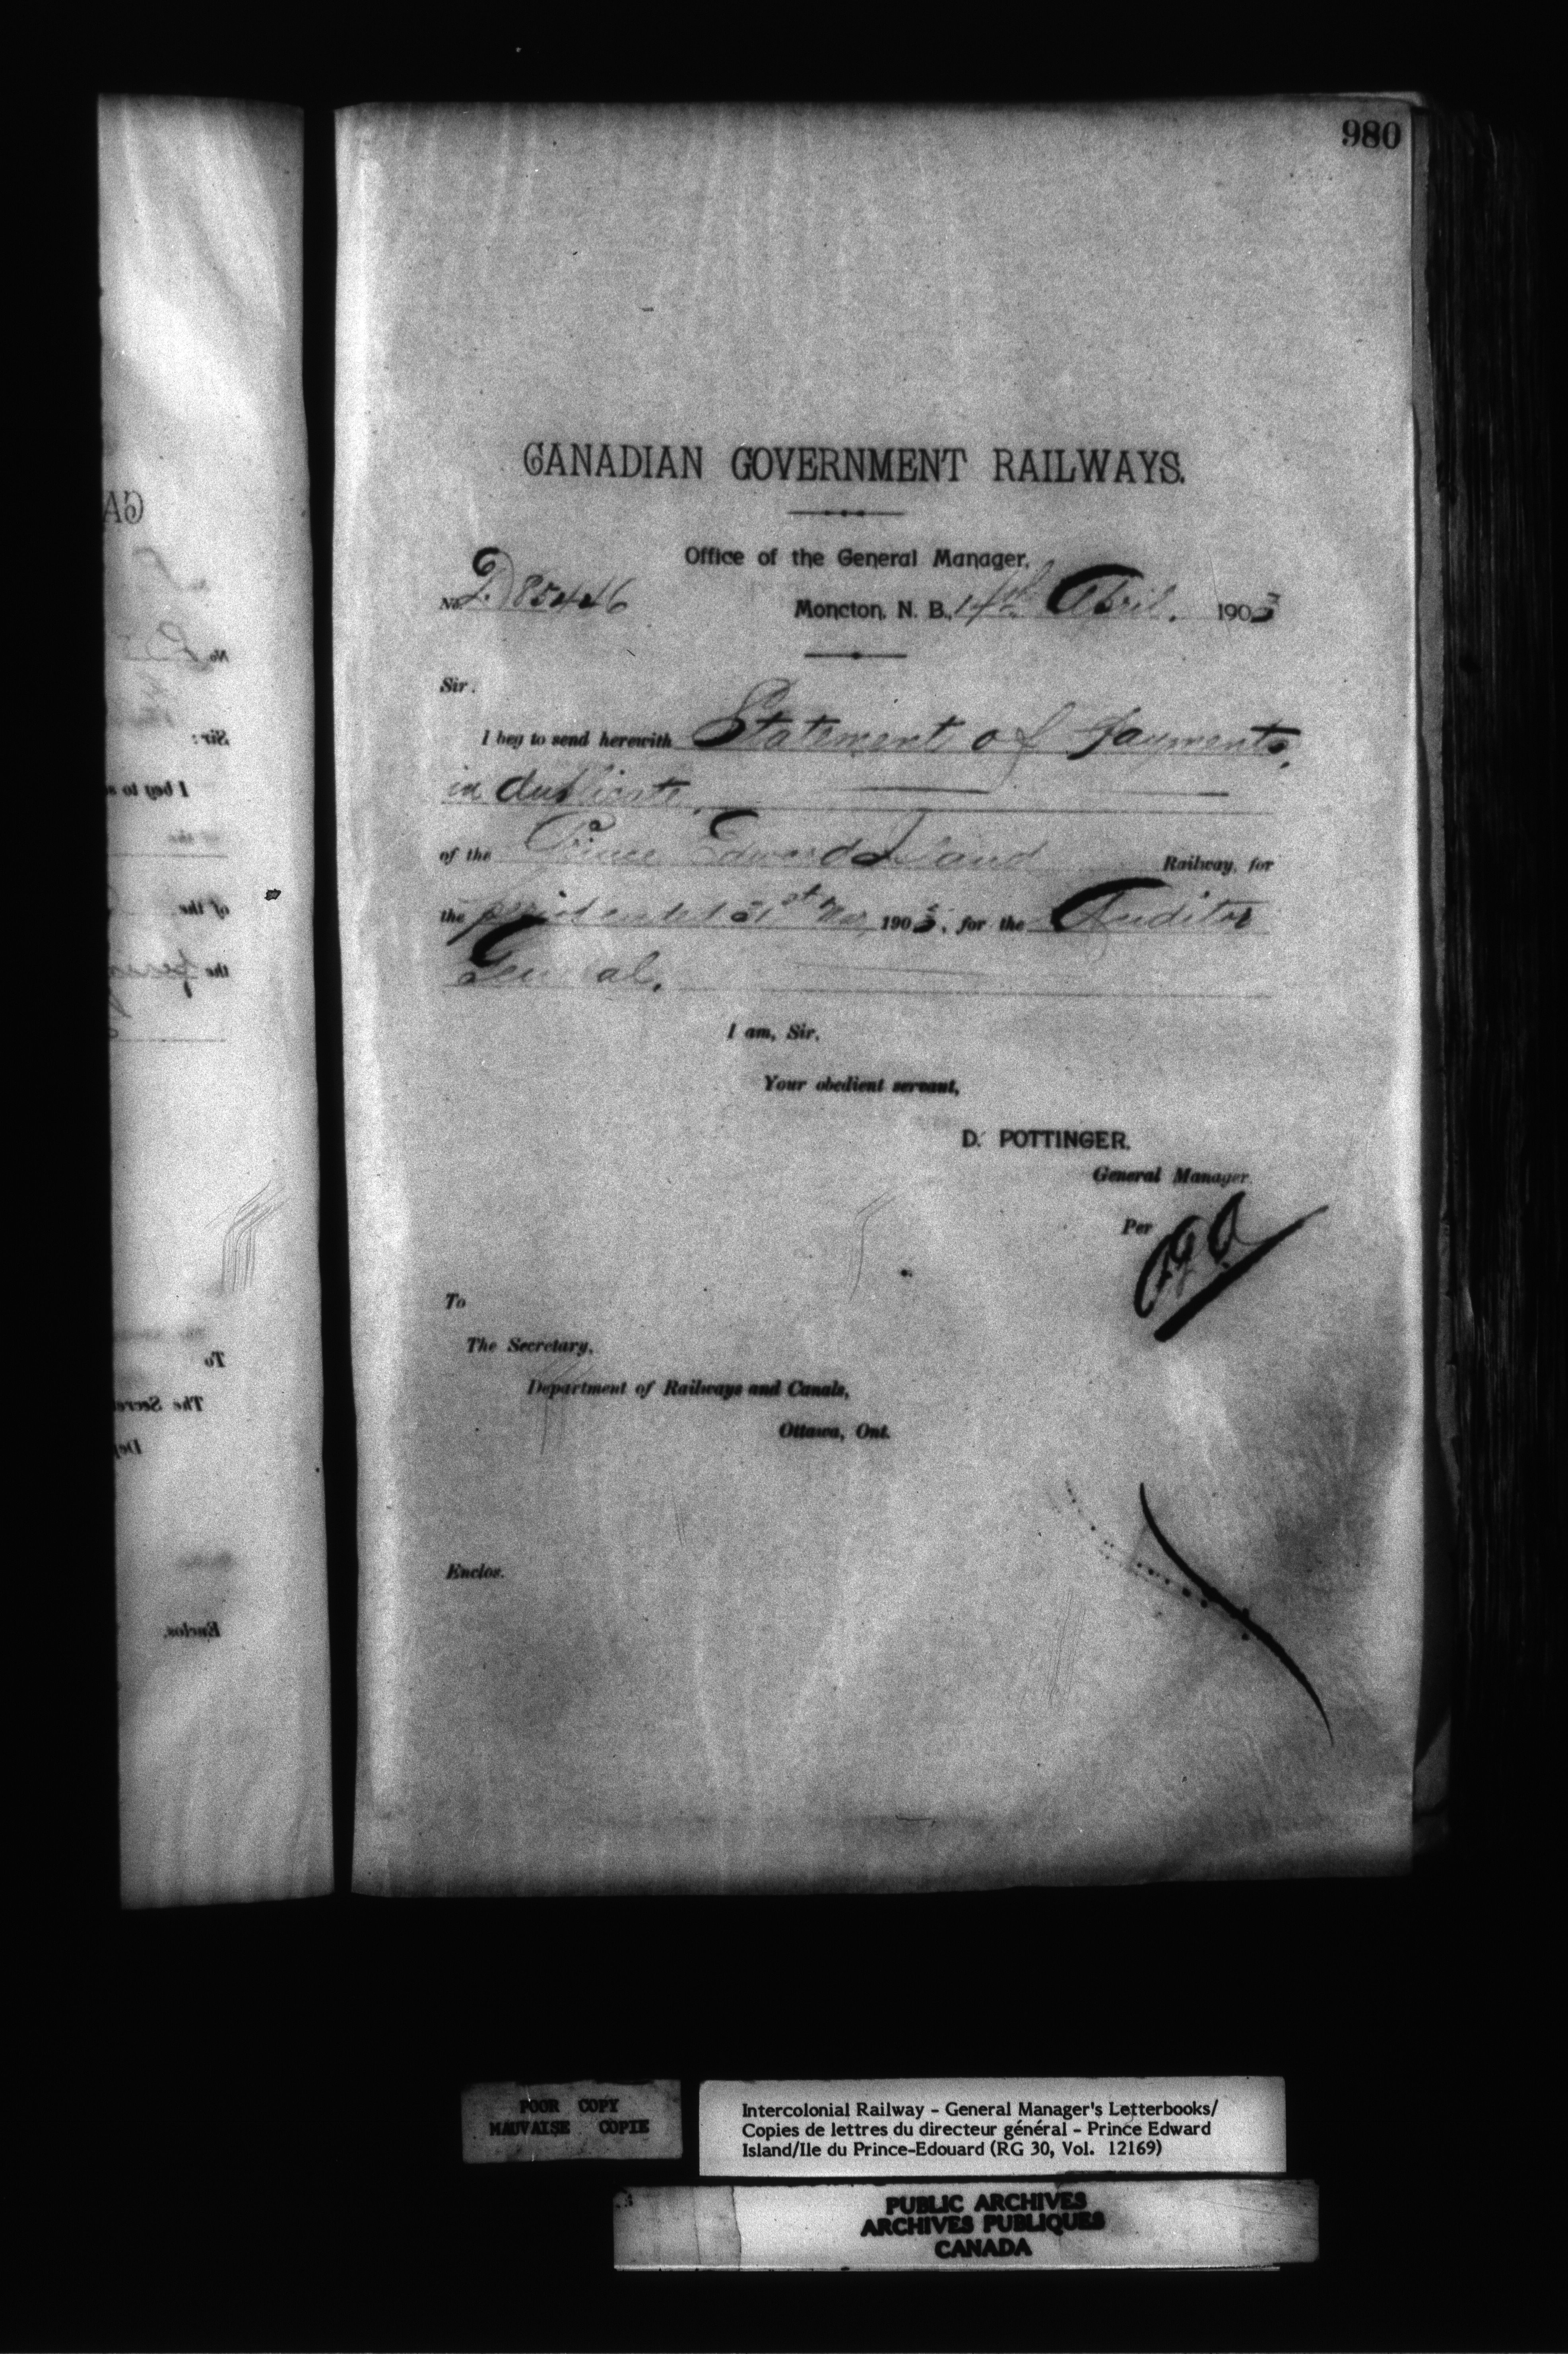 980
CANADIAN GOVERNMENT RAILWAYS.
Office of the General Manager,
No. D85446
Moncton, N. B., 14th April. 1903
Sir.
I beg to send herewith Statement of Payments,
in duplicate.
of the Prince Edward Island Railway, for
the period ended 31st Mar, 1903, for the Auditor
General.
I am, Sir,
Your obedient servant,
D. POTTINGER.
General Manager.
Per
To
The Secretary,
Department of Railways and Canals,
Ottawa, Ont.
Enclos.
POOR COPY
MAUVAISE COPIE
Intercolonial Railway - General Manager's Letterbooks/
Copies de lettres du directeur général - Prince Edward
Island/Ile du Prince-Edouard (RG 30, Vol. 12169)
PUBLIC ARCHIVES
ARCHIVES PUBLIQUES
CANADA